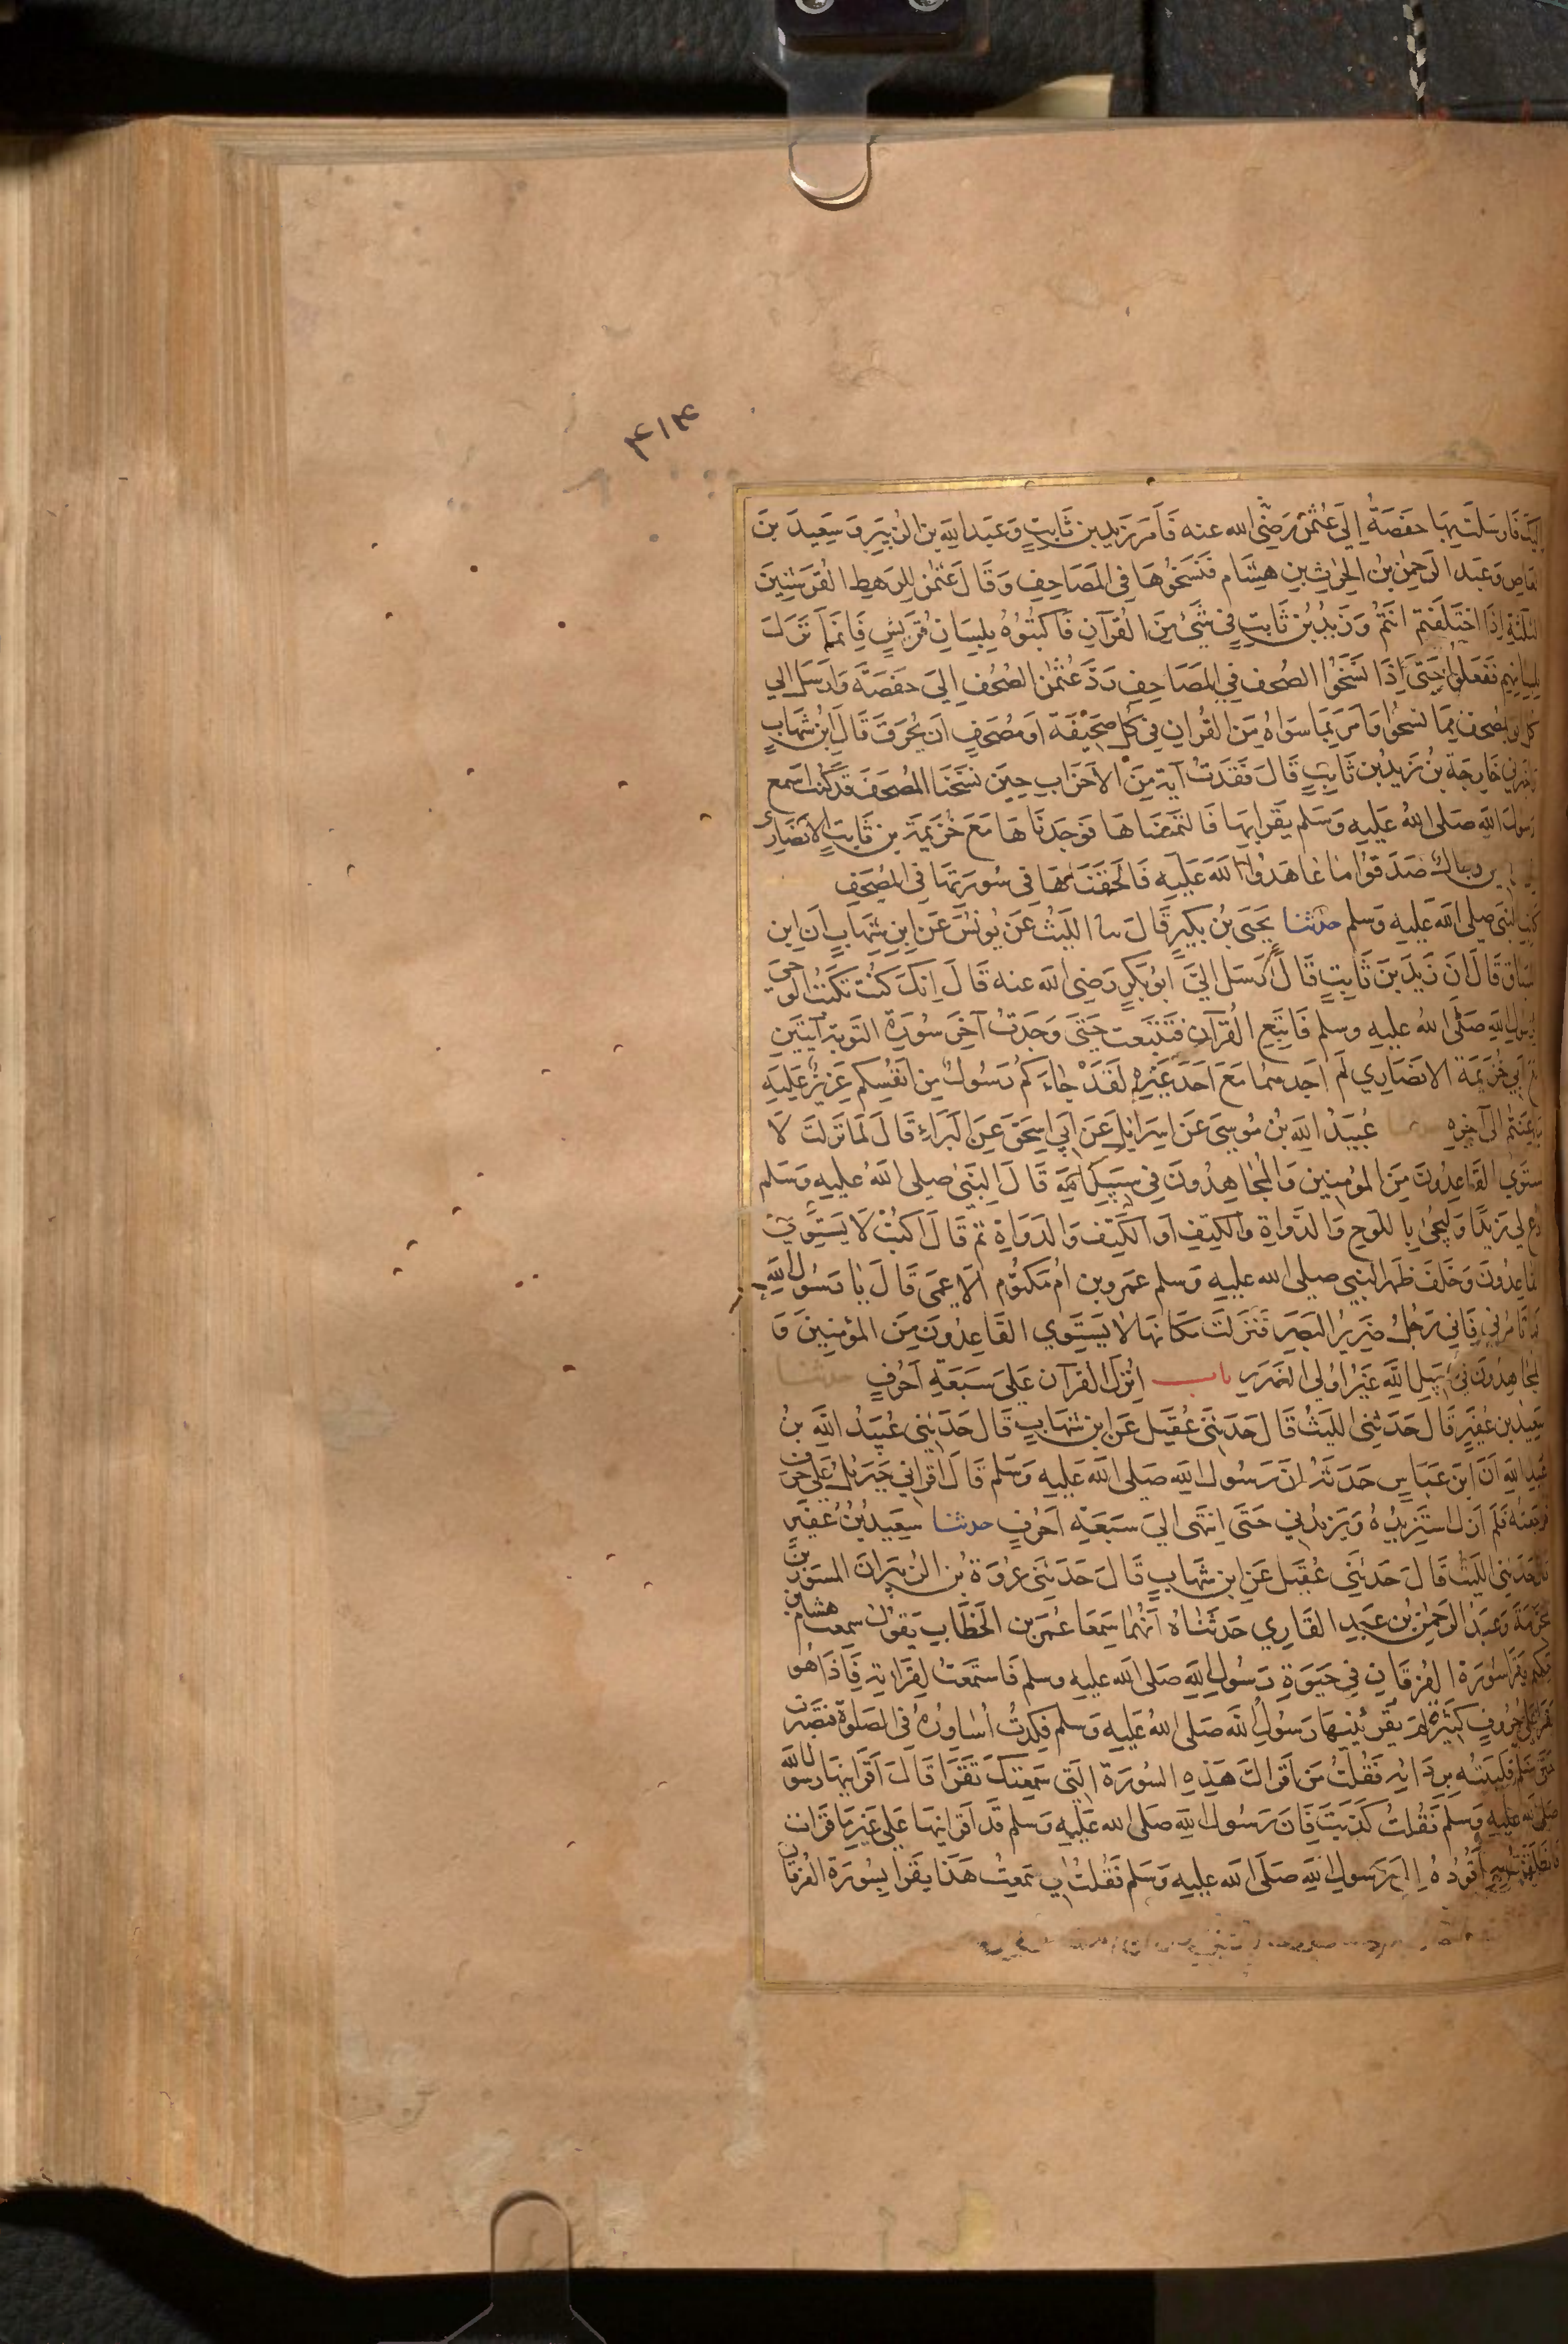 ۴۱۴
اليك فارسلت بها حفصة الى عثمن رضي الله عنه فامر زيد بن ثابت وعبد الله بن الزبير وسعيد بن
العاص وعبد الرحمن بن الحرث بن هشام فنسخوها في المصاحف وقال عثمن للرهط القرشيين
الثلثة اذا اختلفتم انتم وزيد بن ثابت في شيء من القرآن فاكتبوه بلسان قريش فانما نزل
بلسانهم ففعلوا حتى اذا نسخوا الصحف في المصاحف رد عثمن الصحف الى حفصة وارسل الى
كل افق بمصحف مما نسخوا وامر بما سواه من القران في كل صحيفة او مصحف ان يحرق قال ابن شهاب
فاخبرني خارجة بن زيد بن ثابت قال فقدت آية من الاحزاب حين نسخنا المصحف قد كنت اسمع
رسول الله صلى الله عليه وسلم يقرا بها فالتمضناها فوجدناها مع خزيمة بن ثابت الانصاري
رجال صدقوا ما عاهدوا الله عليه فالحقناها في سورتها في المصحف
كاتب النبي صلى الله عليه وسلم حدثنا يحيى بن بكير قال ثنا الليث عن يونس عن ابن شهاب ان ابن
السباق قال ان زيد بن ثابت قال ارسل الي ابو بكر رضي الله عنه قال انك كنت تكتب الوحي
لرسول الله صلى الله عليه وسلم فاتبع القرآن فتتبعت حتى وجدت آخر سورة التوبة آيتين
مع ابي خزيمة الانصاري لم اجدهما مع احد غيره لقد جاءكم رسول من انفسكم عزيز عليه
ما عنتم الى آخره حدثنا عبيد الله بن موسى عن اسرايل عن ابي اسحق عن البراء قال لما نزلت لا
يستوي القاعدون من المؤمنين والمجاهدون في سبيل الله قال النبي صلى الله عليه وسلم
ادع لي زيدا وليجئ باللوح والدواة والكتف او الكتف والدواة ثم قال اكتب لا يستوي
القاعدون وخلف ظهر النبي صلى الله عليه وسلم عمرو بن ام مكتوم الاعمى قال يا رسول الله
فما تامرني فاني رجل ضرير البصر فنزلت مكانها لا يستوي القاعدون من المؤمنين و
المجاهدون في سبيل الله غير اولي الضرر باب انزل القرآن على سبعة احرف حدثنا
سعيد بن عفير قال حدثني الليث قال حدثني عقيل عن ابن شهاب قال حدثني عبيد الله بن
عبد الله ان ابن عباس حدثه ان رسول الله صلى الله عليه وسلم قال اقراني جبريل على حرف
فراجعته فلم ازل استزيده ويزيدني حتى انتهى الي سبعة احرف حدثنا سعيد بن عفير
قال حدثني الليث قال حدثني عقيل عن ابن شهاب قال حدثني عروة بن الزبير ان المسور بن
مخرمة وعبد الرحمن بن عبد القاري حدثناه انهما سمعا عمر بن الخطاب يقول سمعت هشام بن
حكيم يقرا سورة الفرقان في حيوة رسول الله صلى الله عليه وسلم فاستمعت لقراته فاذا هو
يقرا على حروف كثيرة لم يقرئنيها رسول الله صلى الله عليه وسلم فكدت اساوره في الصلوة فتصبرت
حتى سلم فلببته بردائه فقلت من اقراك هذه السورة التي سمعتك تقرا قال اقرانيها رسول الله
صلى الله عليه وسلم فقلت كذبت فان رسول الله صلى الله عليه وسلم قد اقرانيها على غير ما قرات
فانطلقت به اقوده الى رسول الله صلى الله عليه وسلم فقلت اني سمعت هذا يقرا بسورة الفرقان